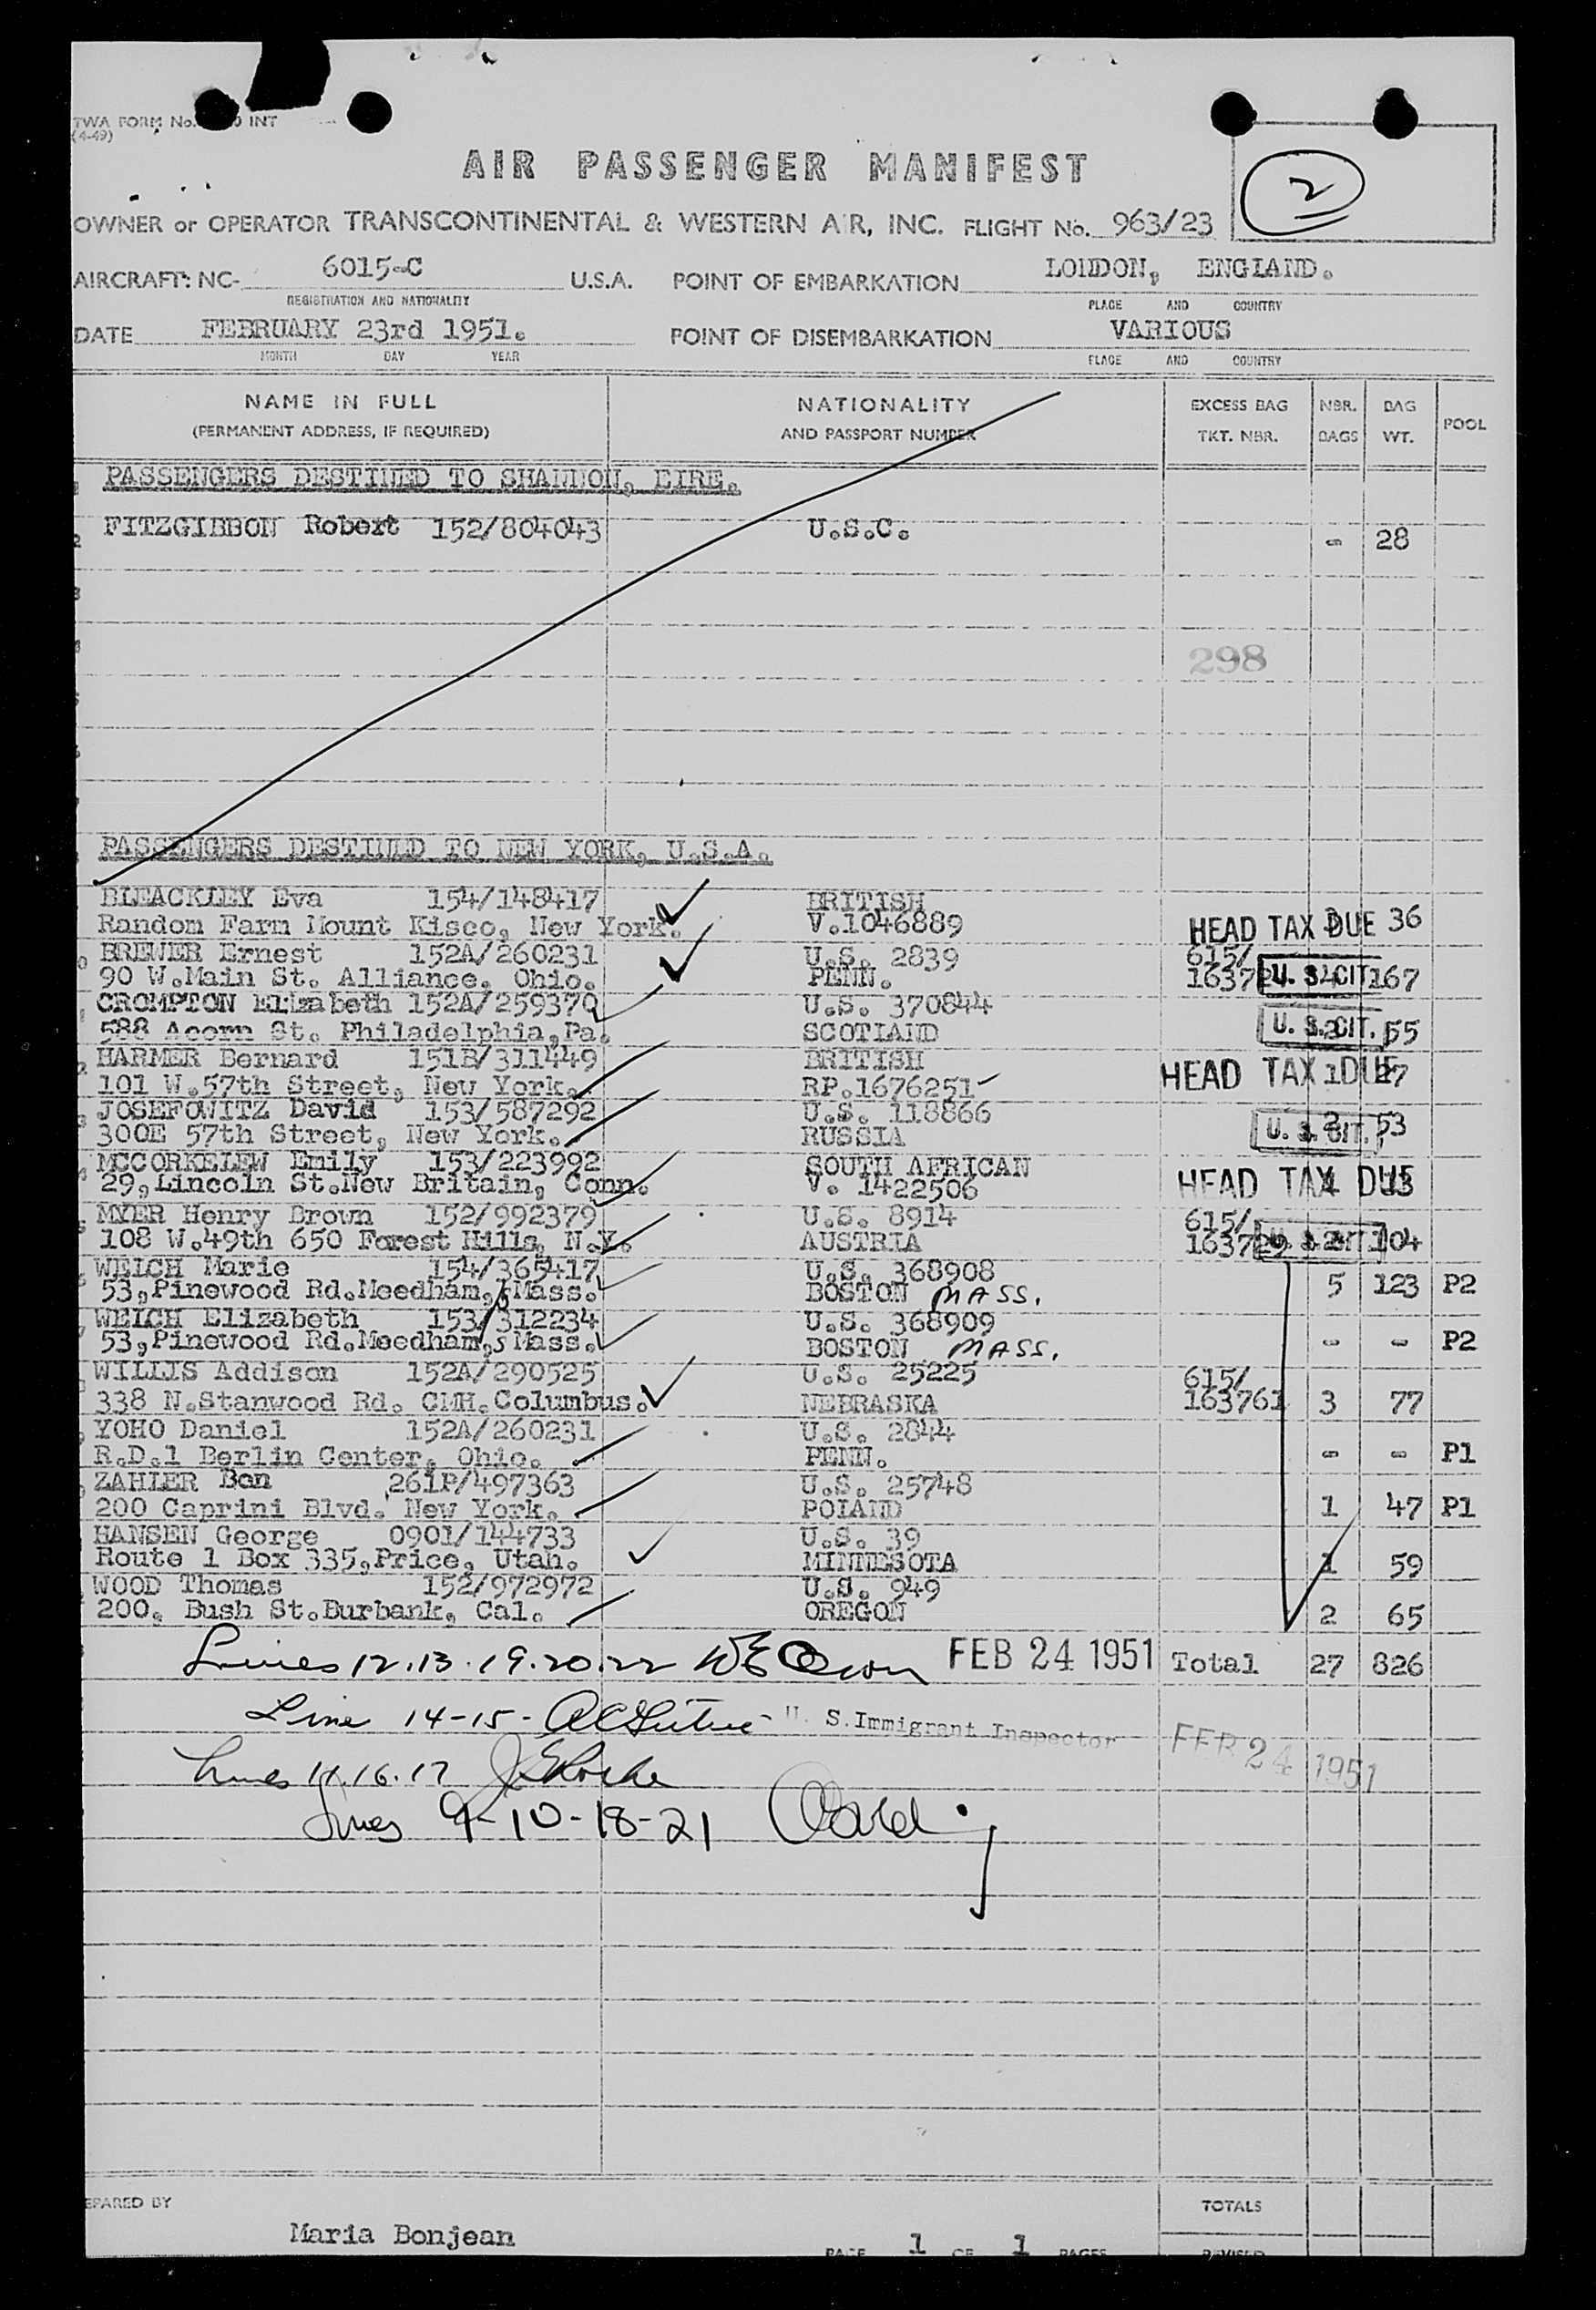 TWA FORM No. INT
(4-49)
AIR PASSENGER MANIFEST
2
OWNER or OPERATOR TRANSCONTINENTAL & WESTERN AIR, INC. FLIGHT No. 963/23
AIRCRAFT: NC- 6015-C U.S.A. POINT OF EMBARKATION LONDON, ENGLAND.
REGISTRATION AND NATIONALITY PLACE AND COUNTRY
DATE FEBRUARY 23rd 1951. POINT OF DISEMBARKATION VARIOUS
MONTH DAY YEAR PLACE AND COUNTRY
NAME IN FULL NATIONALITY EXCESS BAG NBR. BAG POOL
(PERMANENT ADDRESS, IF REQUIRED) AND PASSPORT NUMBER TKT. NBR. BAGS WT.
PASSENGERS DESTINED TO SHANNON, EIRE.
FITZGIBBON Robert 152/804043 U.S.C. - 28
298
PASSENGERS DESTINED TO NEW YORK, U.S.A.
BLEACKLEY Eva 154/148417 BRITISH
Random Farm Mount Kisco, New York. V.1046889 HEAD TAX DUE 36
BREWER Ernest 152A/260231 U.S. 2839 615/
90 W.Main St. Alliance, Ohio. PENN. 16372 U. S. CIT 167
CROMPTON Elizabeth 152A/259370 U.S. 370844
588 Acorn St. Philadelphia,Pa. SCOTLAND U. S. CIT. 55
HARMER Bernard 151B/311449 BRITISH
101 W.57th Street, New York. RP.1676251 HEAD TAX DUE 1 27
JOSEFOWITZ David 153/587292 U.S. 118866
300E 57th Street, New York. RUSSIA U. S. CIT. 2 53
MCCORKELEW Emily 153/223992 SOUTH AFRICAN
29,Lincoln St.New Britain, Conn. V. 1422506 HEAD TAX DUE
MYER Henry Brown 152/992379 U.S. 8914 615/
108 W.49th 650 Forest Hills, N.Y. AUSTRIA 163729 U. S. CIT 104
WELCH Marie 154/365417 U.S. 368908
53,Pinewood Rd.Meedham, Mass. BOSTON MASS. 5 123 P2
WELCH Elizabeth 153/312234 U.S. 368909
53,Pinewood Rd.Meedham, Mass. BOSTON MASS. - - P2
WILLIS Addison 152A/290525 U.S. 25225 615/
338 N.Stanwood Rd. CMH.Columbus. NEBRASKA 163761 3 77
YOHO Daniel 152A/260231 U.S. 2844
R.D.1 Berlin Center, Ohio. PENN. - - P1
ZAHLER Ben 261P/497363 U.S. 25748
200 Caprini Blvd. New York. POLAND 1 47 P1
HANSEN George 0901/144733 U.S. 39
Route 1 Box 335,Price, Utah. MINNESOTA 1 59
WOOD Thomas 152/972972 U.S. 949
200, Bush St.Burbank, Cal. OREGON 2 65
Lines 12.13.19.20.22 FEB 24 1951 Total 27 826
Line 14-15- U. S. Immigrant Inspector FEB 24 1951
Lines 11.16.17
Lines 9-10-18-21
PREPARED BY TOTALS
Maria Bonjean PAGE 1 OF 1 PAGES REVISED